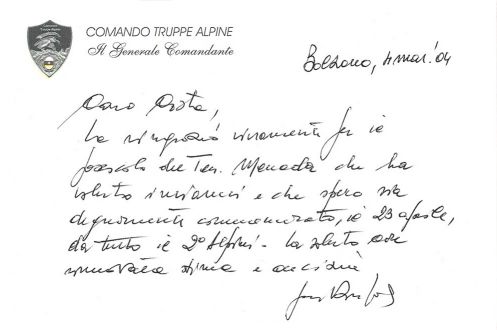 COMANDO TRUPPE ALPINE
Il Generale Comandante
Bolzano, 4 mar. '04
Caro
La ringrazio vivamente per il
fascicolo del Ten. Menada che ha
voluto inviarmi e che spero sia
degnamente commemorato, il 23 aprile,
da tutto il 2° Alpini. La saluto con
rinnovata stima e amicizia